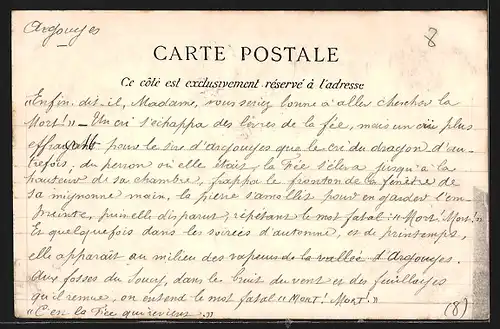 Argouges
8
CARTE POSTALE
Ce côté est exclusivement réservé à l'adresse
"Enfin, dit-il, Madame, vous seriez bonne à aller chercher la
Mort!" — Un cri s'échappa des lèvres de la fée, mais un cri plus
effrayant pour le sire d'Argouges que le cri du dragon d'au-
trefois, du perron où elle était, la Fée s'éleva jusqu'à la
hauteur de sa chambre, frappa le fronton de la fenêtre de
sa mignonne main, la pierre s'amollit pour en garder l'em-
preinte, puis elle disparut répétant le mot fatal: "Mort! Mort!"
Et quelquefois dans les soirées d'automne, et de printemps,
elle apparaît au milieu des vapeurs de la vallée d'Argouges.
Aux fosses du Soucy, dans le bruit du vent et des feuillages
qu'il remue, on entend le mot fatal "Mort! Mort!"
"C'est la Fée qui revient."
(8)